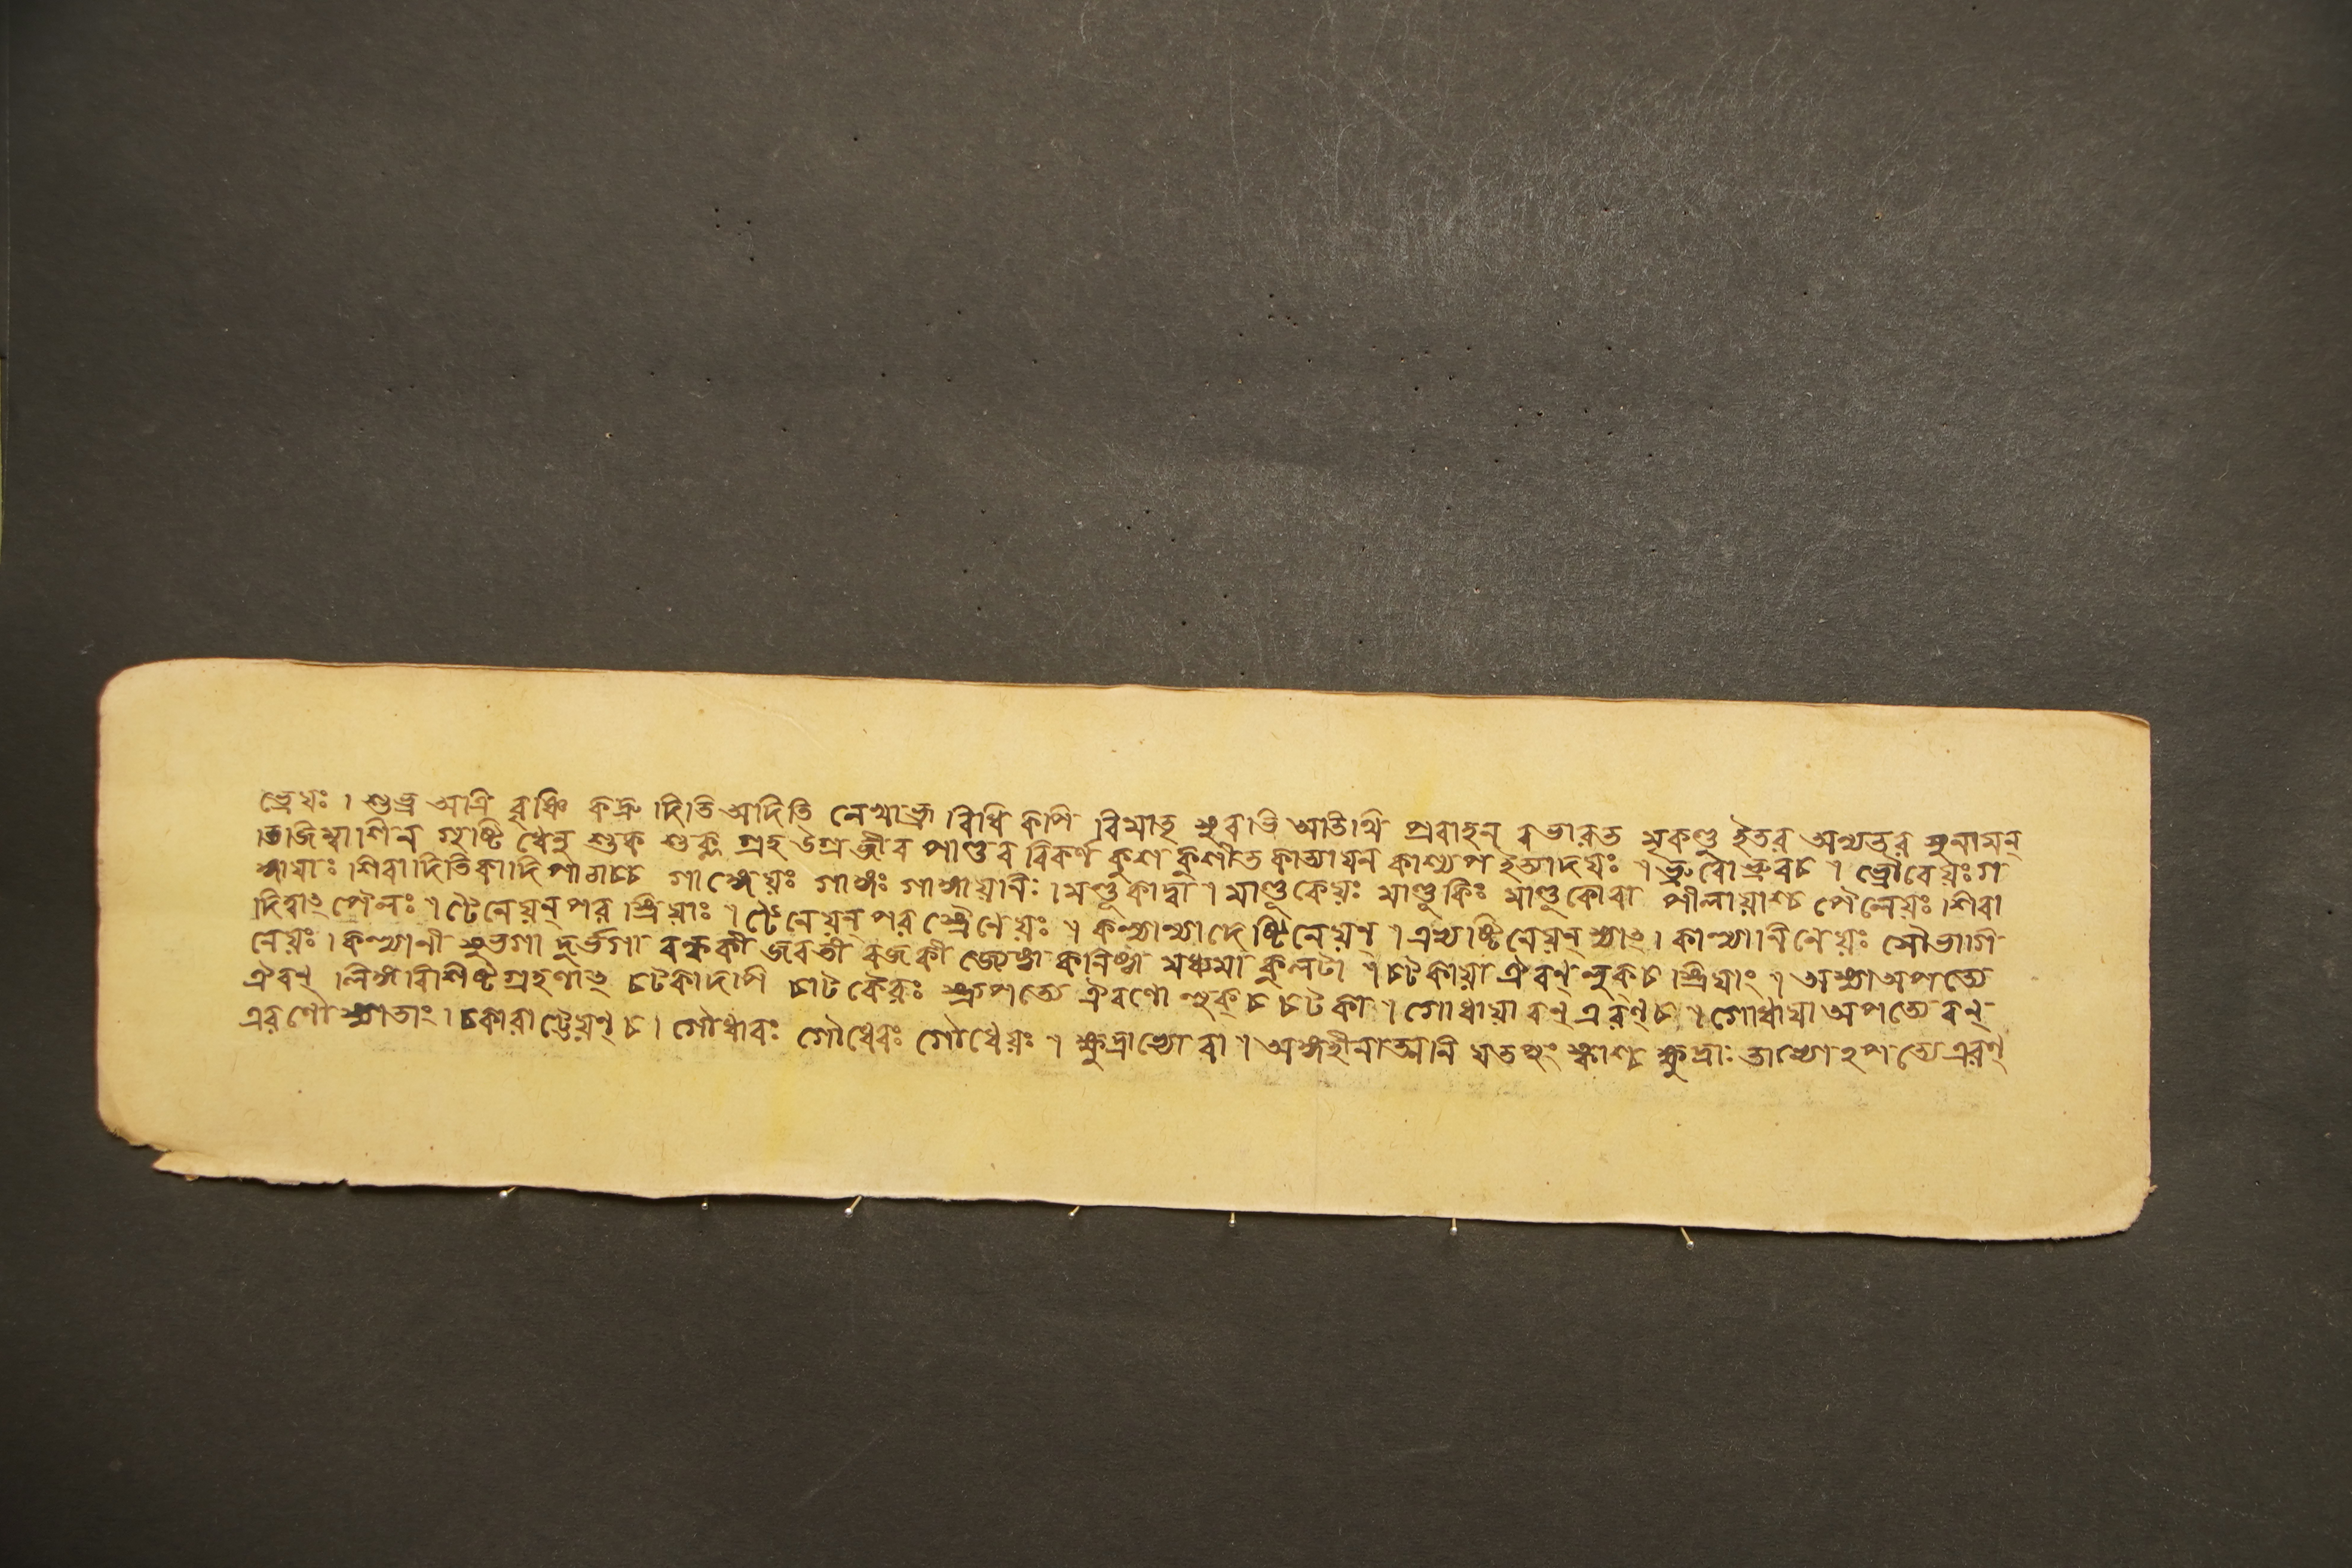 ভ্রেয়ঃ । শুভ্র অত্রি বৃষ্ণি কদ্রু দিতি অদিতি বিধি কপি বিমাতৃ অতিথি প্রবাহন ভারত মৃকণ্ডু ইতর অন্যতর সুনামন্
গৃষ্টি ধেনু শুক শুক্ল গ্রহ উগ্র জীব পাণ্ডব বিকর্ণ কুশ কুশীত কাত্যায়ন কাশ্যপ ইত্যাদয়ঃ । ভ্রুবো ভ্রুবচ । ভ্রৌবেয়ঃ গ
ঙ্গায়াঃ শিবাদিতিকাদিপাঠাচ্চ গাঙ্গেয়ঃ গাঙ্গঃ গাঙ্গায়ানিঃ । মণ্ডূকাদ্বা । মাণ্ডূকেয়ঃ মাণ্ডূকিঃ মাণ্ডূকোবা পীলায়াশ্চ পৈলেয়ঃ । শিবা
দিত্বাৎ পৈলঃ । টৈনেয়ন্ পর স্ত্রিয়াঃ । টৈনেয়ন্ পর স্ত্রৈনেয়ঃ । কল্যাণ্যাদেষ্টিনেয়ন্ । এভ্যষ্টিনেয়ন্ স্যাৎ । কাল্যানিনেয়ঃ সৌভাগি
নেয়ঃ । কল্যানী সুভগা দুর্ভগা বন্ধকী জরতী রজকী জ্যেষ্ঠা কনিষ্ঠা মধ্যমা কুলটা । চটকায়া ঐরণ্ লুক্ চ স্ত্রিয়াং । অস্যা অপত্যে
ঐরণ্ লিঙ্গবিশিষ্টগ্রহণাৎ চটকাদপি চাটকৈরঃ স্ত্র্যপত্যে ঐরণো লুক্ চ চটকা । গোধায়া রণ্ এরণ্ চ । গোধায়া অপত্যে রণ্
এরণৌ স্যাতাং । চকারাট্টেয়ণ্ চ । গৌধারঃ গৌধেরঃ গৌধেয়ঃ । ক্ষুদ্রাভ্যো বা । অঙ্গহীনা অনিয়তপুংস্কাশ্চ ক্ষুদ্রাঃ তাভ্যোঽপত্যে এরণ্